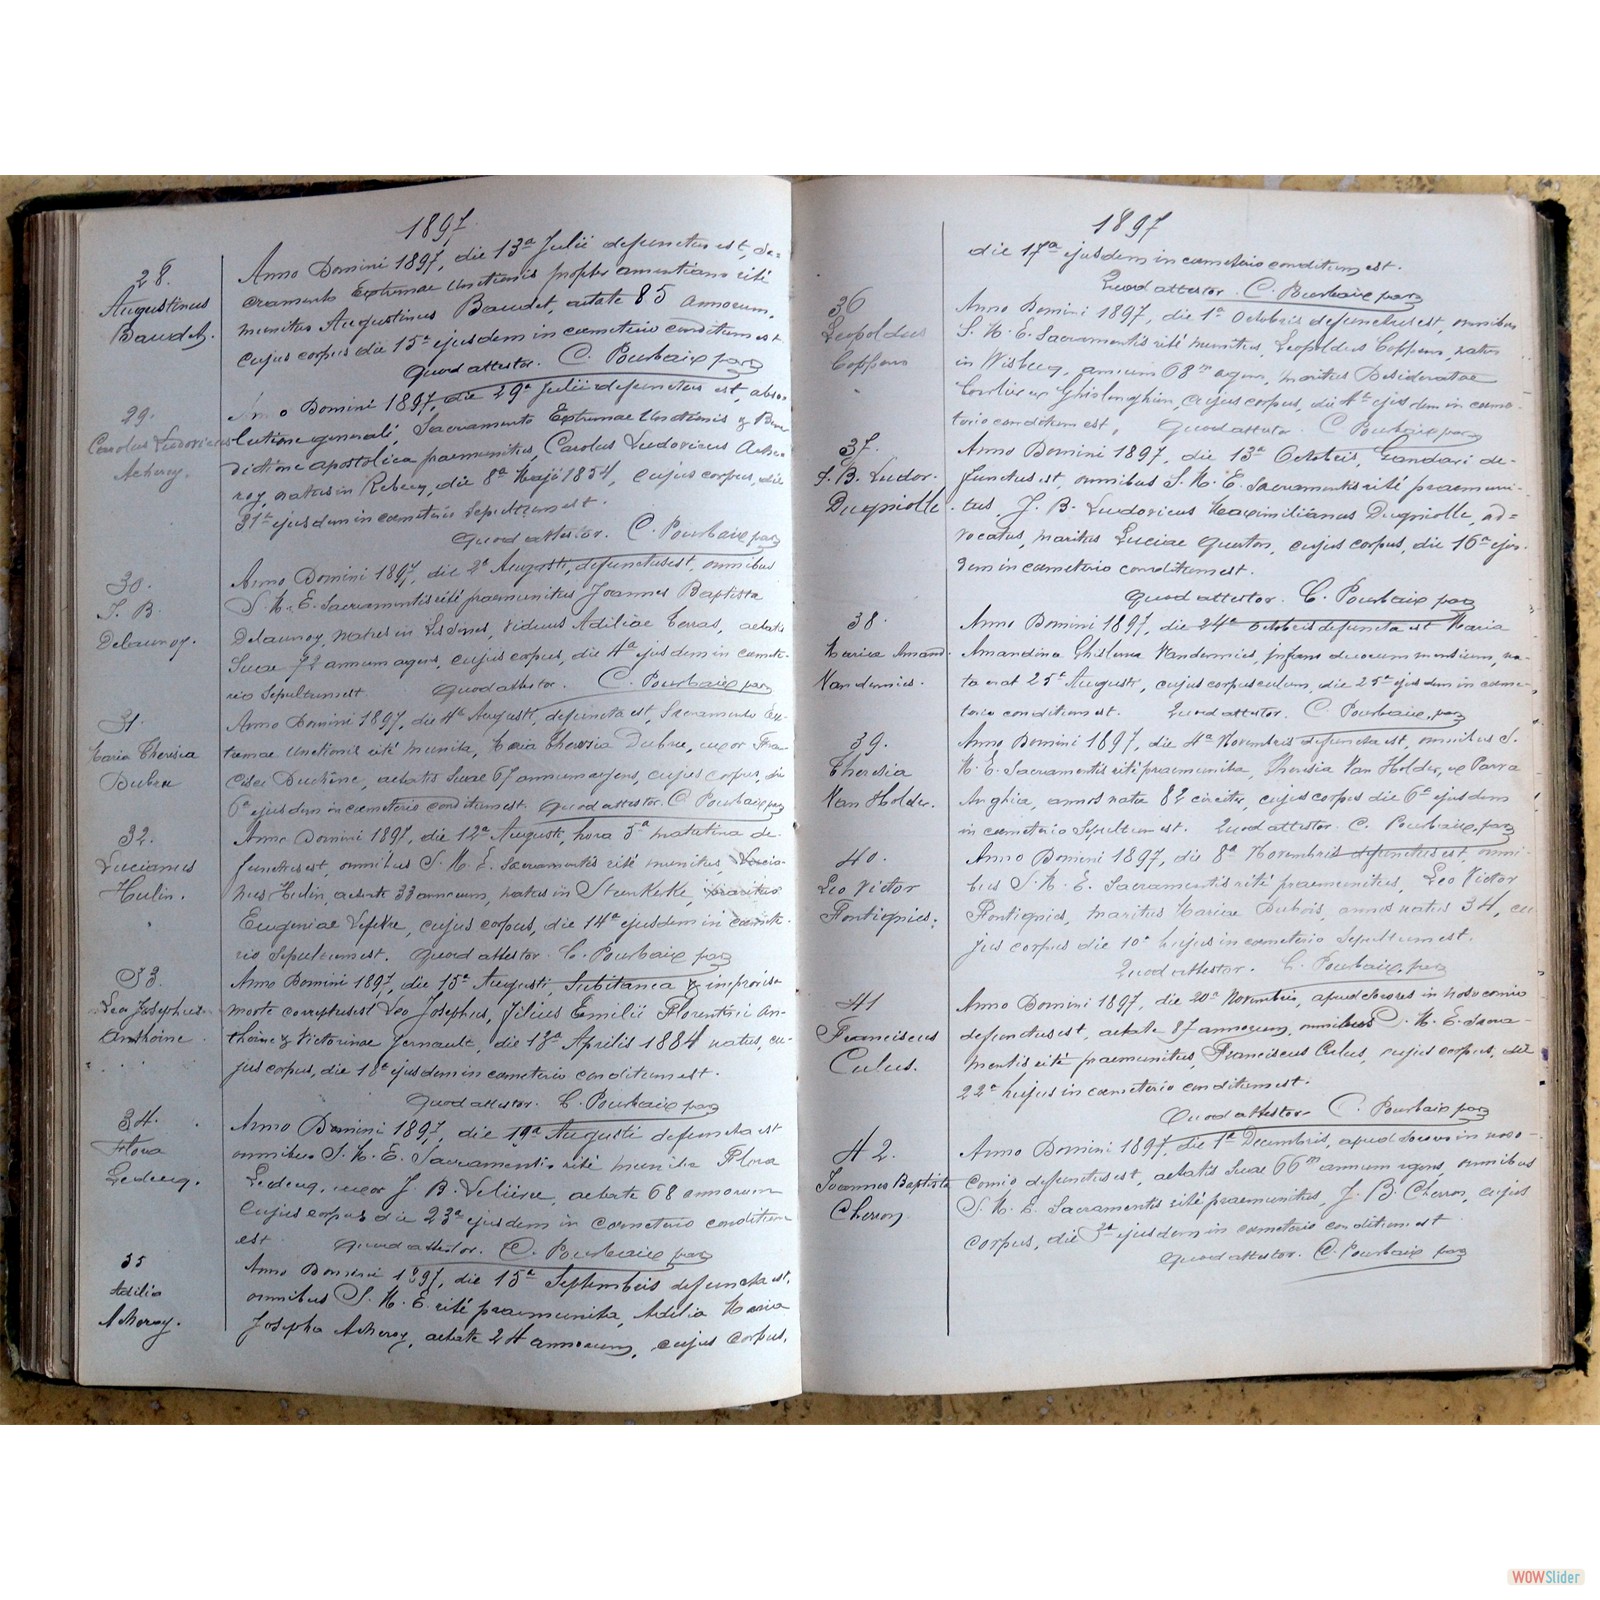 1897
28.
Augustinus
Baudet.
Anno Domini 1897, die 13a Julii defunctus est, Sa=
cramento Extremae Unctionis propter amentiam rité
munitus Augustinus Baudet, aetate 85 annorum,
cujus corpus die 15a ejusdem in cœmeterio conditum est
Quod attestor. C. Pourbaix par
29.
Carolus Ludovicus
Acheroy.
Anno Domini 1897, die 29a Julii defunctus est, abso-
lutione generali, Sacramento Extremae Unctionis & Bene
dictione apostolica praemunitus, Carolus Ludovicus Ache-
roy, natus in Rebecq, die 8a Maji 1854, cujus corpus, die
31a ejusdem in cœmeterio sepultum est.
Quod attestor. C. Pourbaix par
30.
J. B.
Delaunoy.
Anno Domini 1897, die 2a Augusti, defunctus est, omnibus
S. M. E. Sacramentis rité praemunitus Joannes Baptista
Delaunoy, natus in viduus Adiliae aetatis
suae 72 annum agens, cujus corpus, die 4a ejusdem in cœmete-
rio sepultum est. Quod attestor. C. Pourbaix par
31.
Maria Theresia
Dubru
Anno Domini 1897, die 4a Augusti, defuncta est, Sacramento Ex-
tremae Unctionis rité munita, Maria Theresia Dubru, uxor Fran
cisci Duchêne, aetatis suae 67 annum agens, cujus corpus, die
6a ejusdem in cœmeterio conditum est. Quod attestor. C. Pourbaix par
32.
Lucianus
Hulin.
Anno Domini 1897, die 12a Augusti, hora 5a matutina de-
functus est, omnibus S. M. E. Sacramentis rité munitus, Lucia-
nus Hulin, aetate 33 annorum, natus in Steenkerke, maritus
Eugeniae cujus corpus, die 14a ejusdem in cœmete-
rio sepultum est. Quod attestor. C. Pourbaix par
33.
Leo Josephus
Anthoine.
Anno Domini 1897, die 15a Augusti, Subitanea & improvisa
morte correptus est Leo Josephus, filius Emilii Florentini An-
thoine & Victorinae die 13a Aprilis 1884 natus, cu-
jus corpus, die 18a ejusdem in cœmeterio conditum est.
Quod attestor. C. Pourbaix par
34.
Flora
Leclercq.
Anno Domini 1897, die 19a Augusti defuncta est
omnibus S. M. E. Sacramentis rité munita Flora
Leclercq, uxor J. B. aetate 68 annorum
Cujus corpus die 23a ejusdem in cœmeterio conditum
est Quod attestor. C. Pourbaix par
35
Adilia
Acheroy.
Anno Domini 1897, die 15a Septembris defuncta est,
omnibus S. M. E. rité praemunita, Adilia Maria
Josepha Acheroy, aetate 24 annorum, cujus corpus,
1897
die 17a ejusdem in cœmeterio conditum est.
Quod attestor. C. Pourbaix par
36
Leopoldus
Coppens
Anno Domini 1897, die 1a Octobris defunctus est, omnibus
S. M. E. Sacramentis rité munitus, Leopoldus Coppens, natus
in Wisbecq, annum 68m agens, maritus Desideratae
ex Ghislenghien, cujus corpus, die 4a ejusdem in cœme-
terio conditum est, Quod attestor. C Pourbaix par
37.
J. B. Ludov.
Dugniolle.
Anno Domini 1897, die 13a Octobris, Gandavi de-
functus est, omnibus S. M. E. Sacramentis rité praemuni-
tus, J. B. Ludovicus Maximilianus Dugniolle, ad=
vocatus, maritus Luciae cujus corpus, die 16a ejus-
dem in cœmeterio conditum est.
Quod attestor. C. Pourbaix par
38.
Maria Amand.
Vandernies.
Anno Domini 1897, die 24a Octobris defuncta est Maria
Amandina Ghislena Vandernies, infans duorum mensium, na-
ta erat 25a Augusti, cujus corpusculum, die 25a ejusdem in cœme-
terio conditum est. Quod attestor. C. Pourbaix, par
39.
Theresia
Van Holder.
Anno Domini 1897, die 4a Novembris defuncta est, omnibus S.
M. E. Sacramentis rité praemunita, Theresia Van Holder, ex Parva
Anghia, annos nata 82 circiter, cujus corpus die 6a ejusdem
in cœmeterio sepultum est. Quod attestor. C. Pourbaix, par
40.
Leo Victor
Pontignies.
Anno Domini 1897, die 8a Novembris defunctus est, omni-
bus S. M. E. Sacramentis rité praemunitus, Leo Victor
Pontignies, maritus Mariae Dubois, annos natus 34, cu
jus corpus die 10a hujus in cœmeterio sepultum est.
Quod attestor. C. Pourbaix, par
41
Franciscus
Culus.
Anno Domini 1897, die 20a Novembris, apud sorores in nosocomio
defunctus est, aetate 87 annorum, omnibus S. M. E. Sacra-
mentis rité praemunitus, Franciscus Culus, cujus corpus, die
22a hujus in cœmeterio conditum est.
Quod attestor. C. Pourbaix par
42.
Joannes Baptista
Cheron
Anno Domini 1897, die 1a Decembris, apud sorores in noso-
comio defunctus est, aetatis suae 66m annum agens, omnibus
S. M. E. Sacramentis rité praemunitus, J. B. Cheron, cujus
corpus, die 3a ejusdem in cœmeterio conditum est
Quod attestor. C. Pourbaix par
WOWSlider